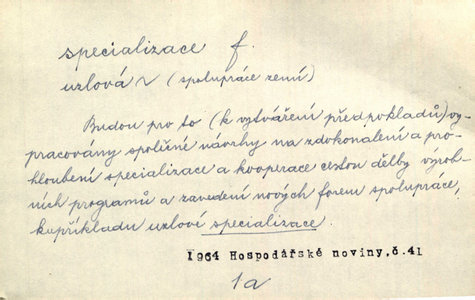 specializace f.
uzlová ~ (spolupráce zemí)
Budou pro to (k vytváření předpokladů) vy-
pracovány společné návrhy na zdokonalení a pro-
hloubení specializace a kooperace cestou dělby výrob-
ních programů a zavedení nových forem spolupráce,
kupříkladu uzlové specializace.
1964 Hospodářské noviny,č.41
1a